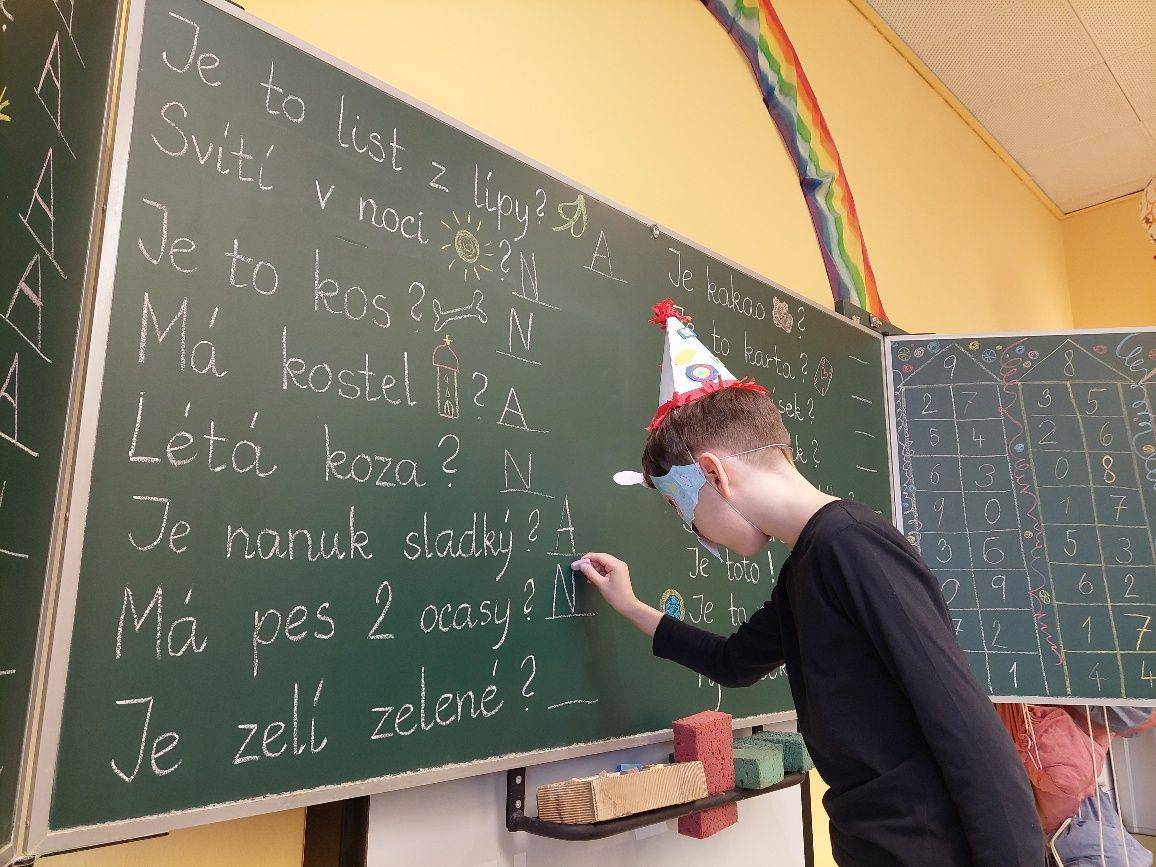 A
A
A
A
Je to list z lípy? A
Svítí v noci ? N
Je to kos? N
Má kostel ? A
Létá koza? N
Je nanuk sladký? A
Má pes 2 ocasy? N
Je zelí zelené? _
Je kakao ?
to karta?
Je toto!
Je to
9
2 7
5 4
6 3
9 0
3 6
0 9
7 2
1
8
3 5
2 6
0 8
1 7
5 3
6 2
1 7
4 4